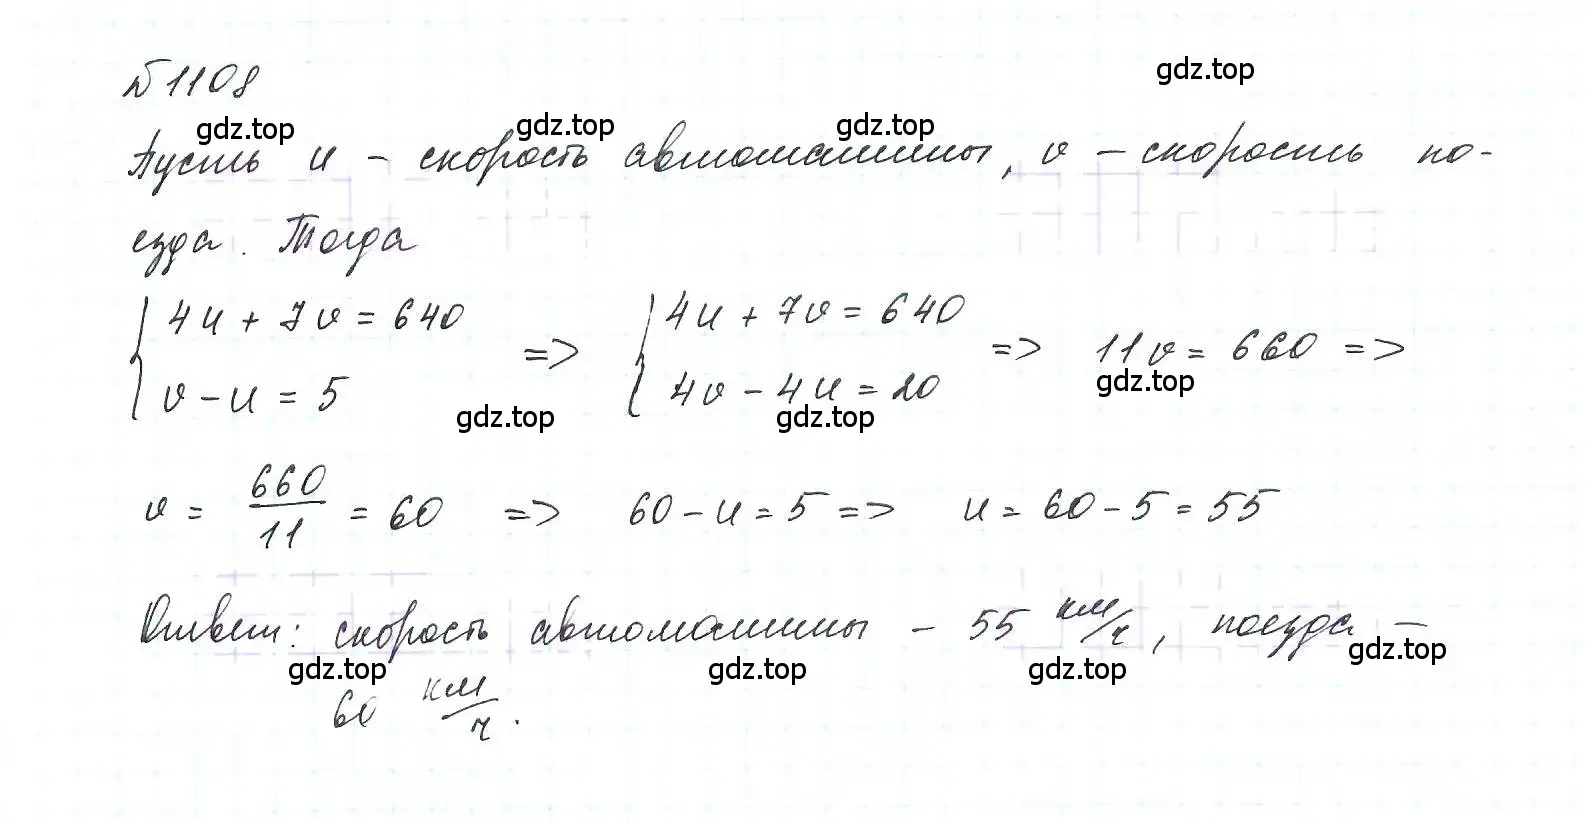 №1108
gdz.top
gdz.top gdz.top gdz.top
Пусть u – скорость автомашины, v – скорость по-
езда. Тогда
{ 4u + 7v = 640 => { 4u + 7v = 640 => 11v = 660 =>
{ v – u = 5 { 4v – 4u = 20
gdz.top gdz.top gdz.top
v = 660/11 = 60 => 60 – u = 5 => u = 60 – 5 = 55
Ответ: скорость автомашины – 55 км/ч, поезда –
gdz.top gdz.top gdz.top gdz.top
60 км/ч.